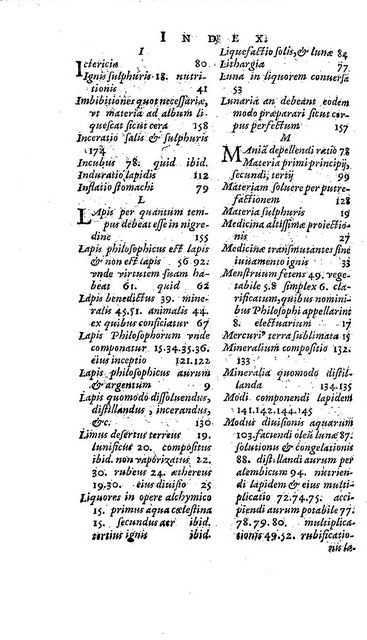 INDEX.
I
Ictericia 80
Ignis sulphuris 18. nutri-
tionis 41
Imbibitiones quot necessariæ,
vt materia ad album li-
quescat sicut cera 158
Inceratio salis & sulphuris
174
Incubus 78. quid ibid.
Induratio lapidis 112
Inflatio stomachi 79
L
LApis per quantum tem-
pus debeat esse in nigre-
dine 155
Lapis philosophicus est lapis
& non est lapis 56 92.
vnde virtutem suam ha-
beat 61. quid 62
Lapis benedictus 39. mine-
ralis 45.51. animalis 44.
ex quibus conficiatur 67
Lapis Philosophorum vnde
componatur 15.34.35.36.
eius inceptio 121.122
Lapis philosophicus aurum
& argentum 9
Lapis quomodo dissoluendus,
distillandus, incerandus,
&c. 130
Limus desertus terreus 19.
lunificus 20. compositus
ibid. non vaporizatus 22.
30. rubeus 24. æthereus
19.30. eius diuisio 25
Liquores in opere alchymico
15. primus aqua cælestina
15. secundus aer ibid.
tertius ignis ibid.
Liquefactio solis, & lunæ 84
Lithargia 77
Luna in liquorem conuersa
53
Lunaria an debeant eodem
modo præparari sicut cor-
pus perfectum 157
M
MAnia depellendi ratio 78
Materia primi principij,
secundi, tertij 99
Materiam soluere per putre-
factionem 128
Materia sulphuris 19
Medicina altissimæ proiectio-
nis 27
Medicinæ transmutantes sine
iuuamento ignis 33
Menstruum fetens 49. vege-
tabile 5.8 simplex 6. cla-
rificatum, quibus nomini-
bus Philosophi appellarint
8. electuarium 17
Mercurij terra sublimata 15
Mineralium compositio 132.
133
Mineralia quomodo distil-
landa 134.135
Modi componendi lapidem
141.142.144.145
Modus diuisionis aquarum
103. faciendi oleũ lunæ 87.
solutionis & congelationis
88. distillandi aurum per
alembicum 94. nutrien-
di lapidem & eius multi-
plicatio 72.74.75. acci-
piendi aurum potabile 77.
78.79.80. multiplica-
tionis 49.52. rubificatio-
nis la-